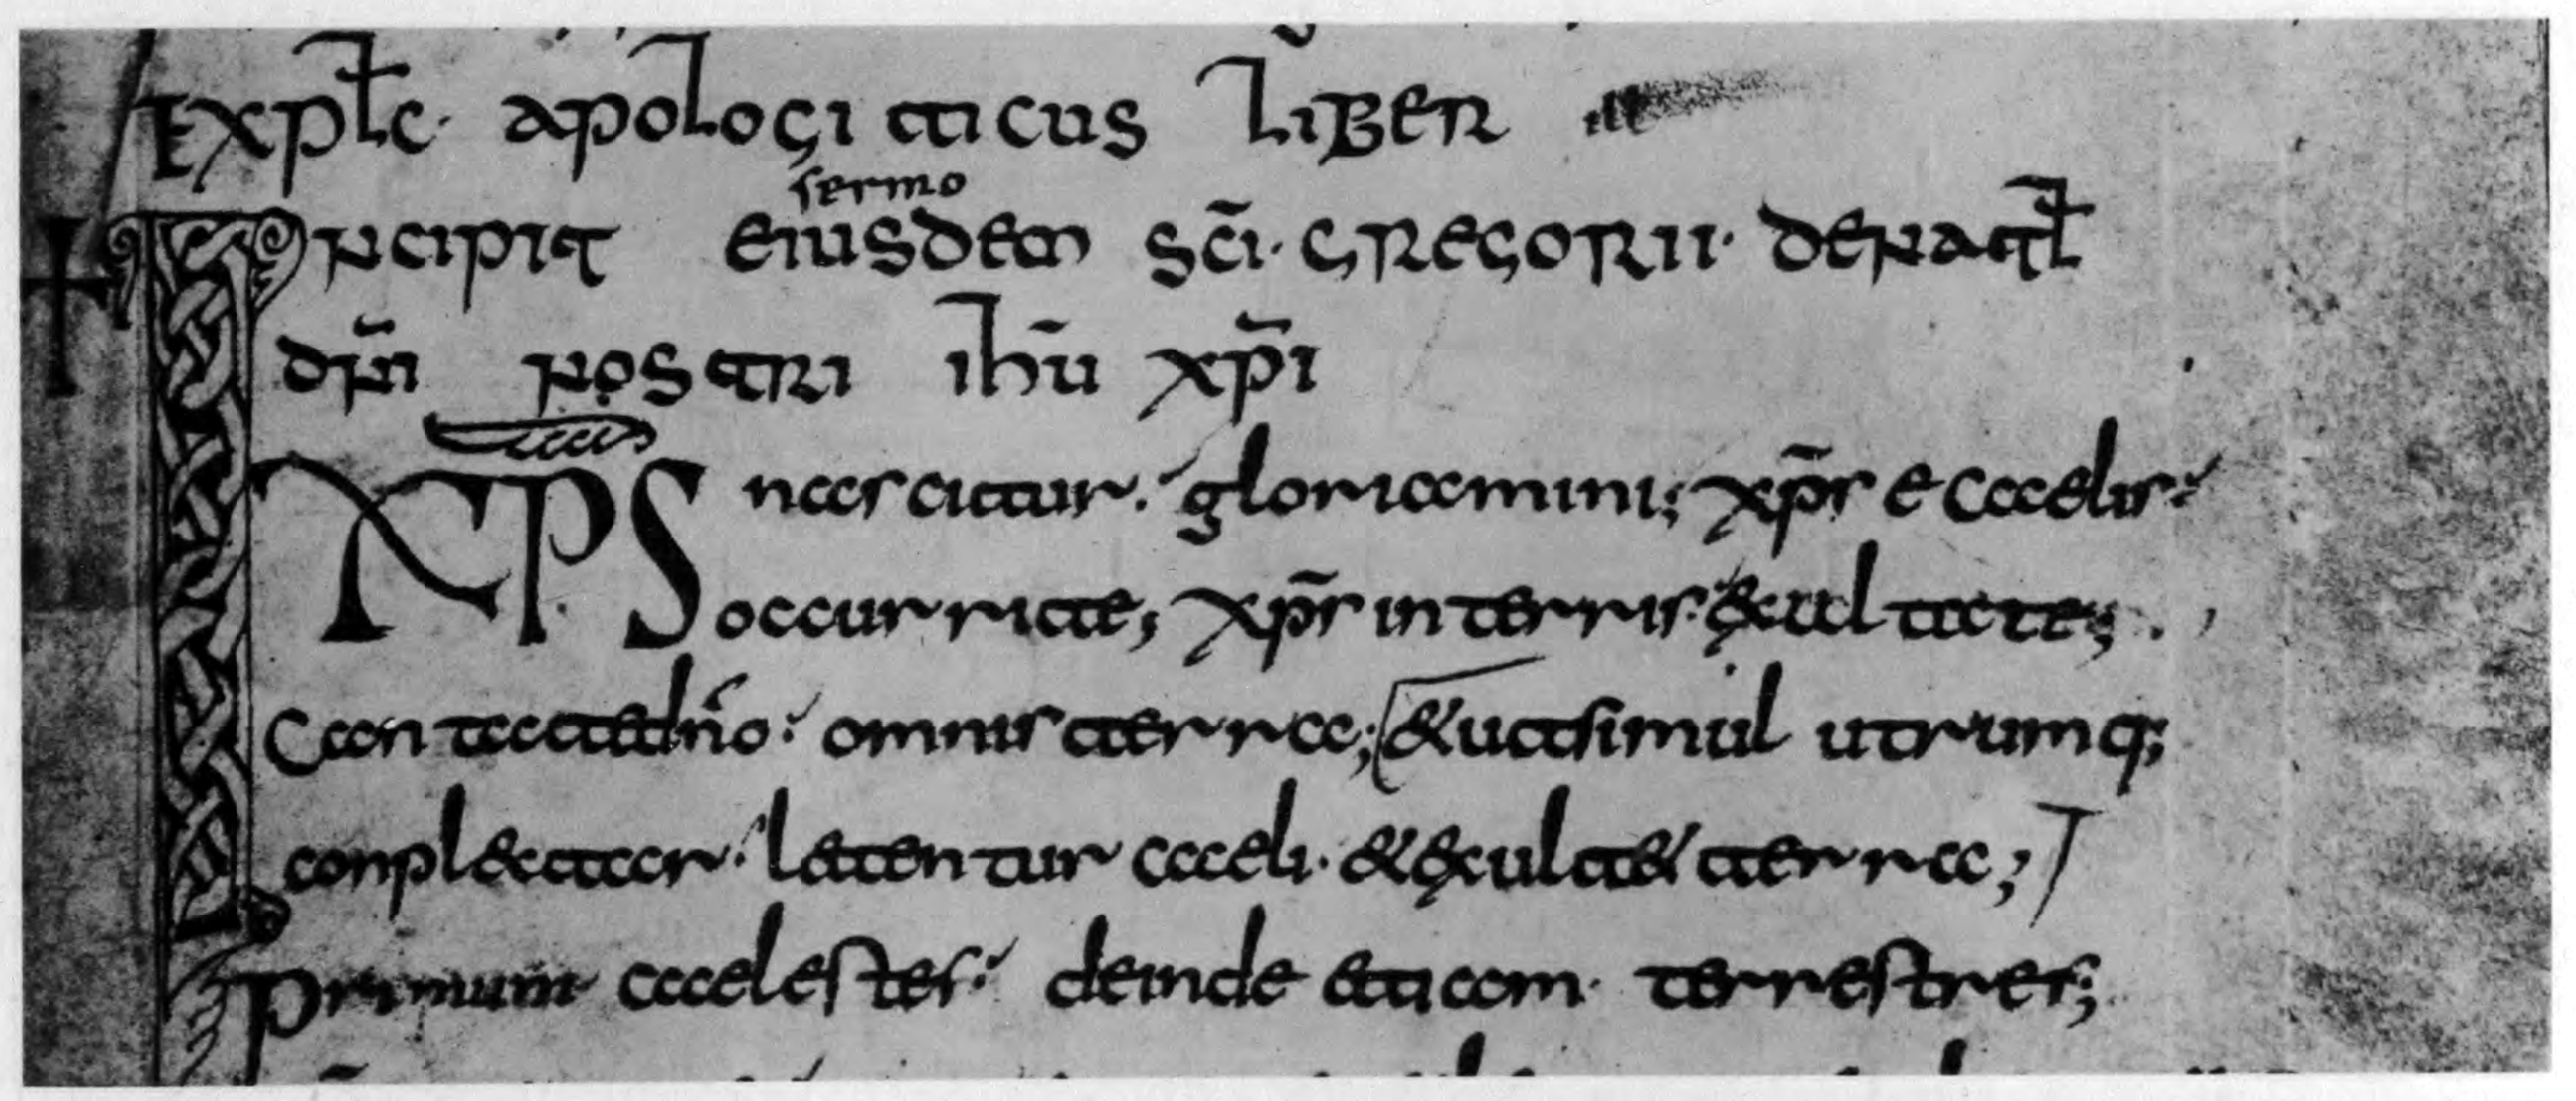 Explc̄· apologiticus liber
sermo
Incipit eiusdem sc̄i· gregorii· denatl̄
dn̄i nostri ihū xp̄i
XP̄S nascitur· gloriamini; xp̄s e caelis·
occurrite; xp̄s in terris· exultate;
Cantatedn̄o· omnis terra; &utsimul utrumq;
conpl&atar· letentur caeli· &exult& terra;
Primum caelestes· deinde etiam· terrestres;